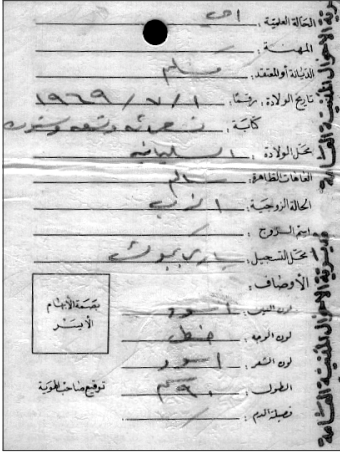 الحالة العلمية : امي
المهنـــة :
الديانة أو المعتقد : مسلم
تاريخ الولادة : رقمًا : ١ / ٧ / ١٩٦٩
كتابةً :
محل الولادة : السليمانيه
العاهات الظاهرة : سالم
الحالة الزوجية : اعزب
اسم الزوج :
محل التسجيل :
الأوصاف :
لون العين : اسود
لون الوجه : حنطي
لون الشعر : اسود
الطول : ٩٠ سم
فصيلة الدم :
بصمة الأبهام
الأيسر
توقيع صاحب الهوية
مديرية الاحوال المدنية العامة
مديرية الاحوال المدنية العامة